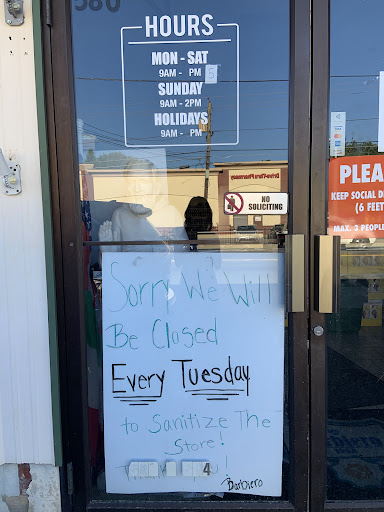 580
HOURS
MON - SAT
9AM - PM 5
SUNDAY
9AM - 2PM
HOLIDAYS
9AM - PM
Drive-Thru Pharmacy
NO
SOLICITING
PLEA
KEEP SOCIAL D
(6 FEET
MAX. 3 PEOPLE
Sorry We Will
Be Closed
Every Tuesday
to Sanitize The
Store!
Barbiero
4